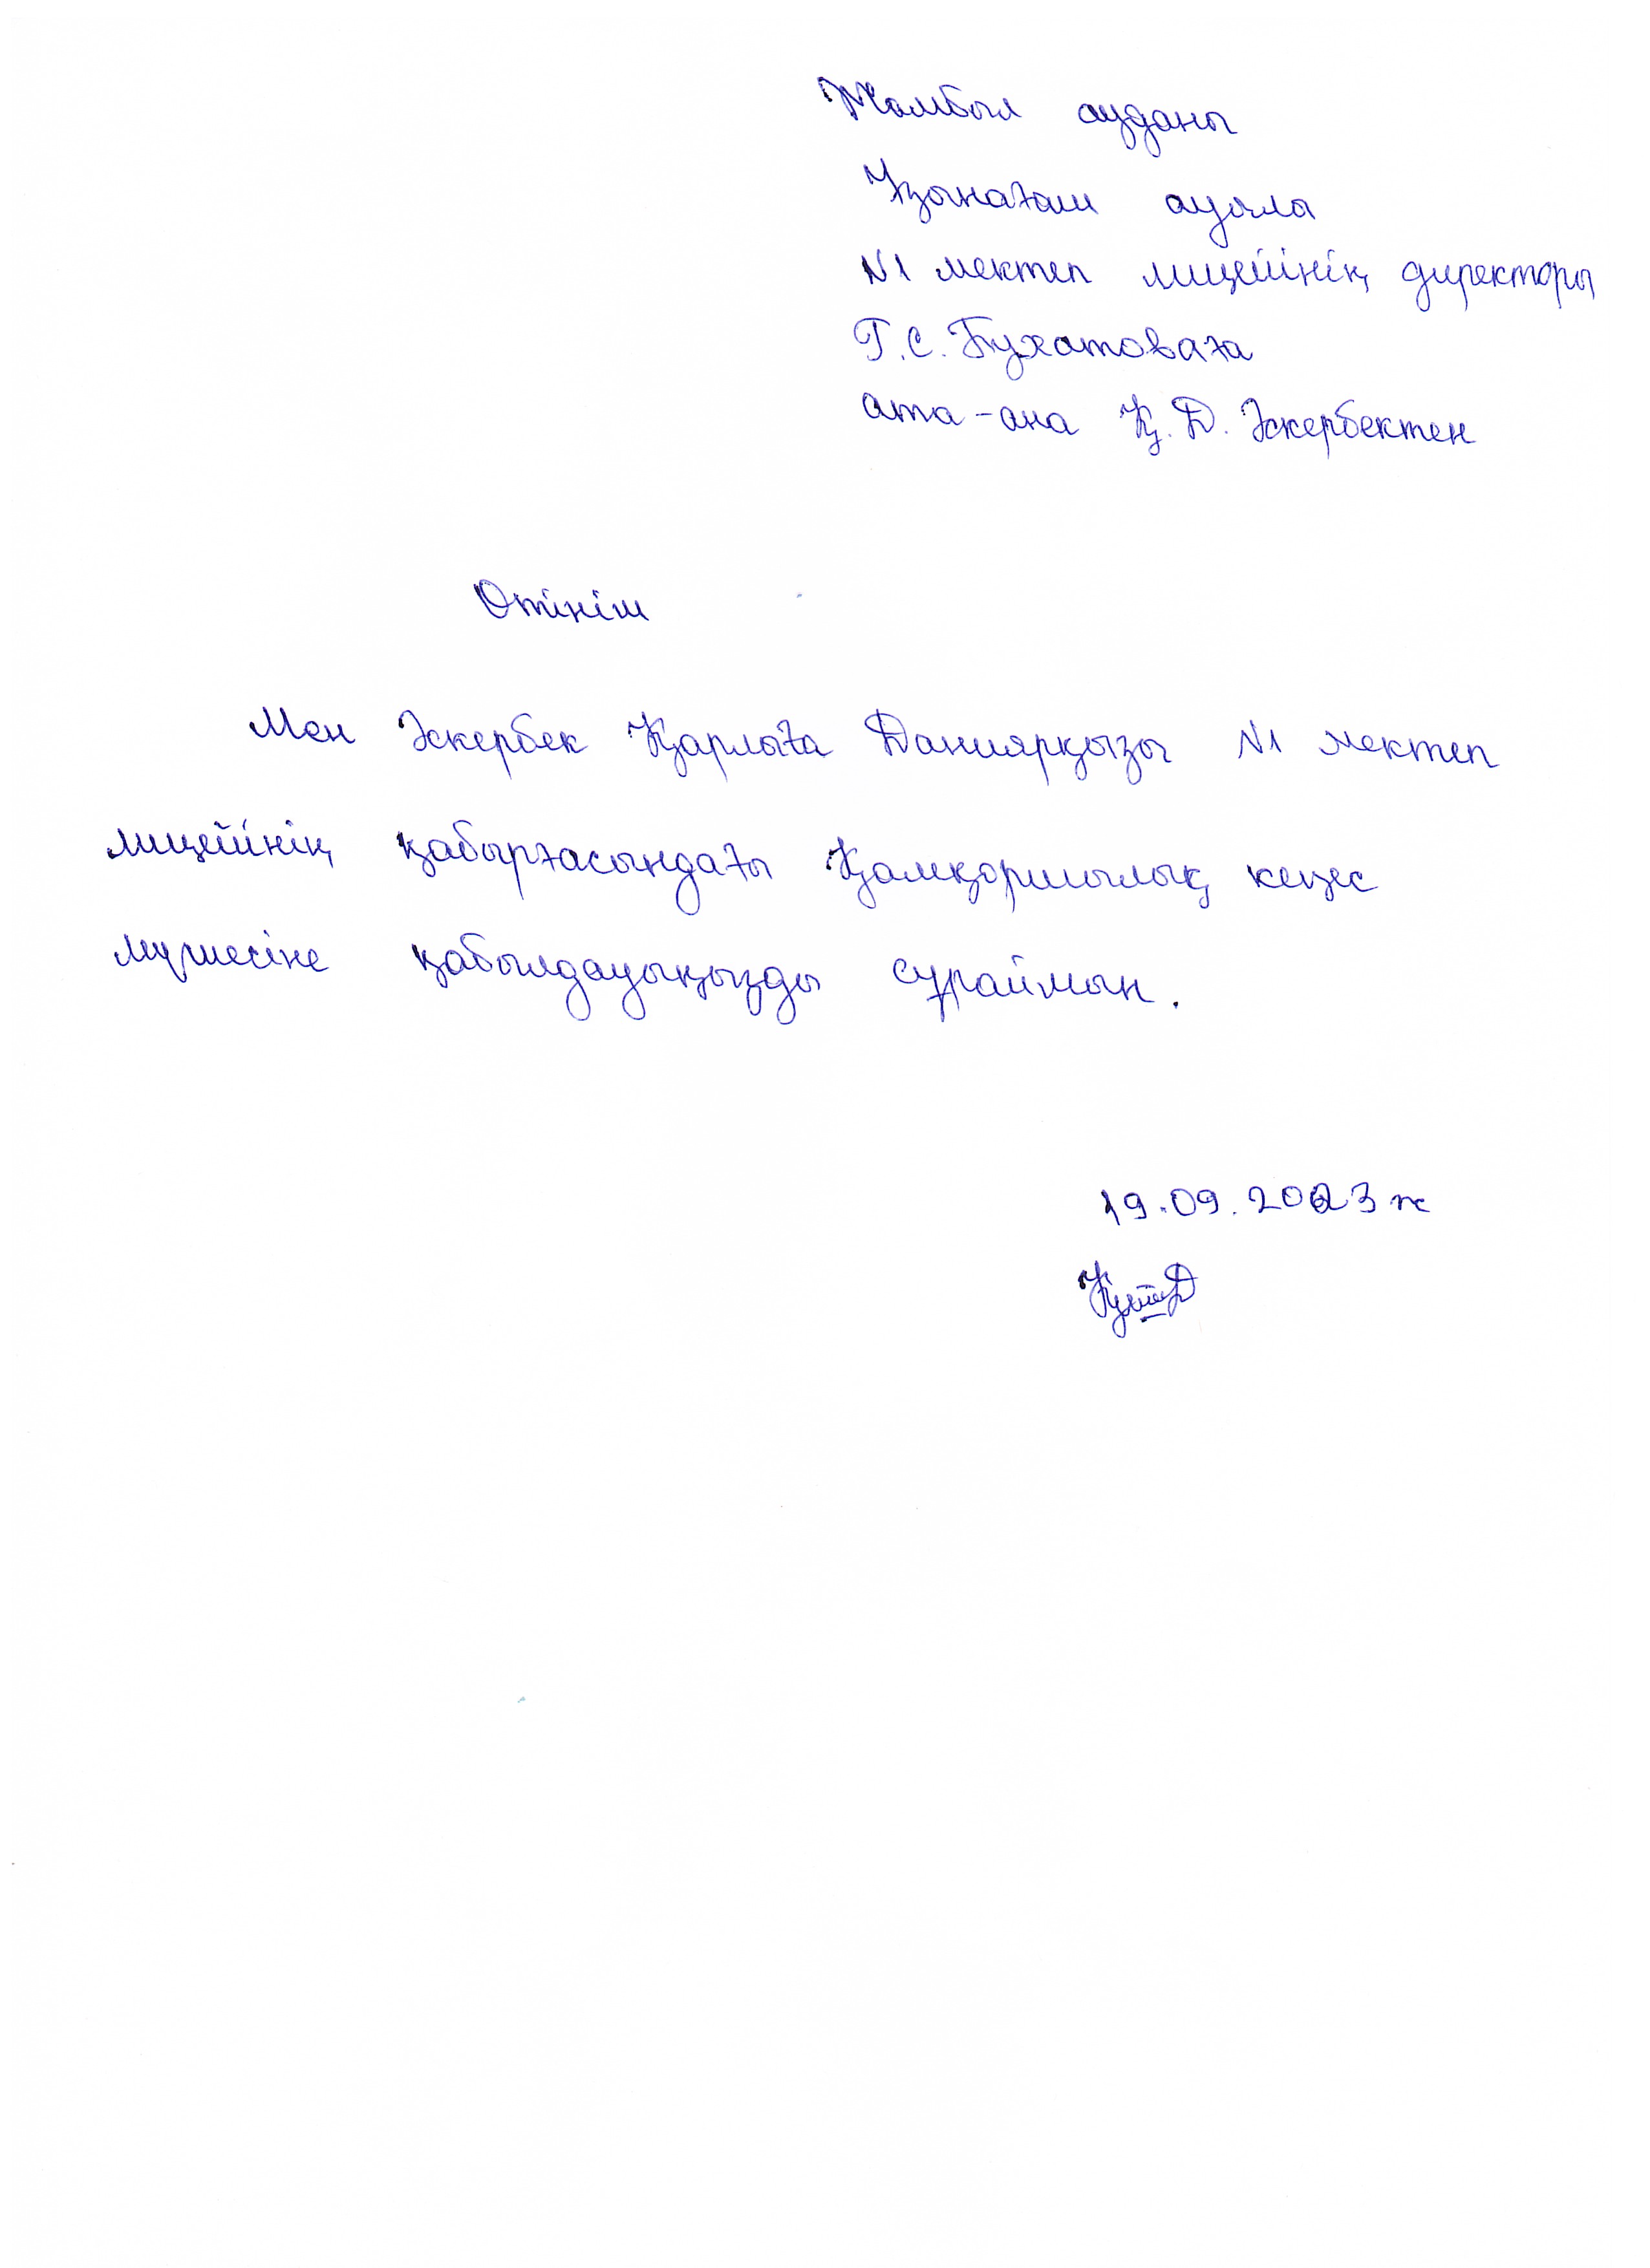 Жамбыл ауданы
Ұзынағаш ауылы
N1 мектеп лицейінің директоры
Г.С. Бухатоваға
ата-ана Қ.Д. Әскербектен
Өтініш
Мен Әскербек Қарлыға Даниярқызы N1 мектеп
лицейінің қабырғасындағы Қамқоршылық кеңес
мүшесіне қабылдауыңызды сұраймын.
19.09.2023 ж